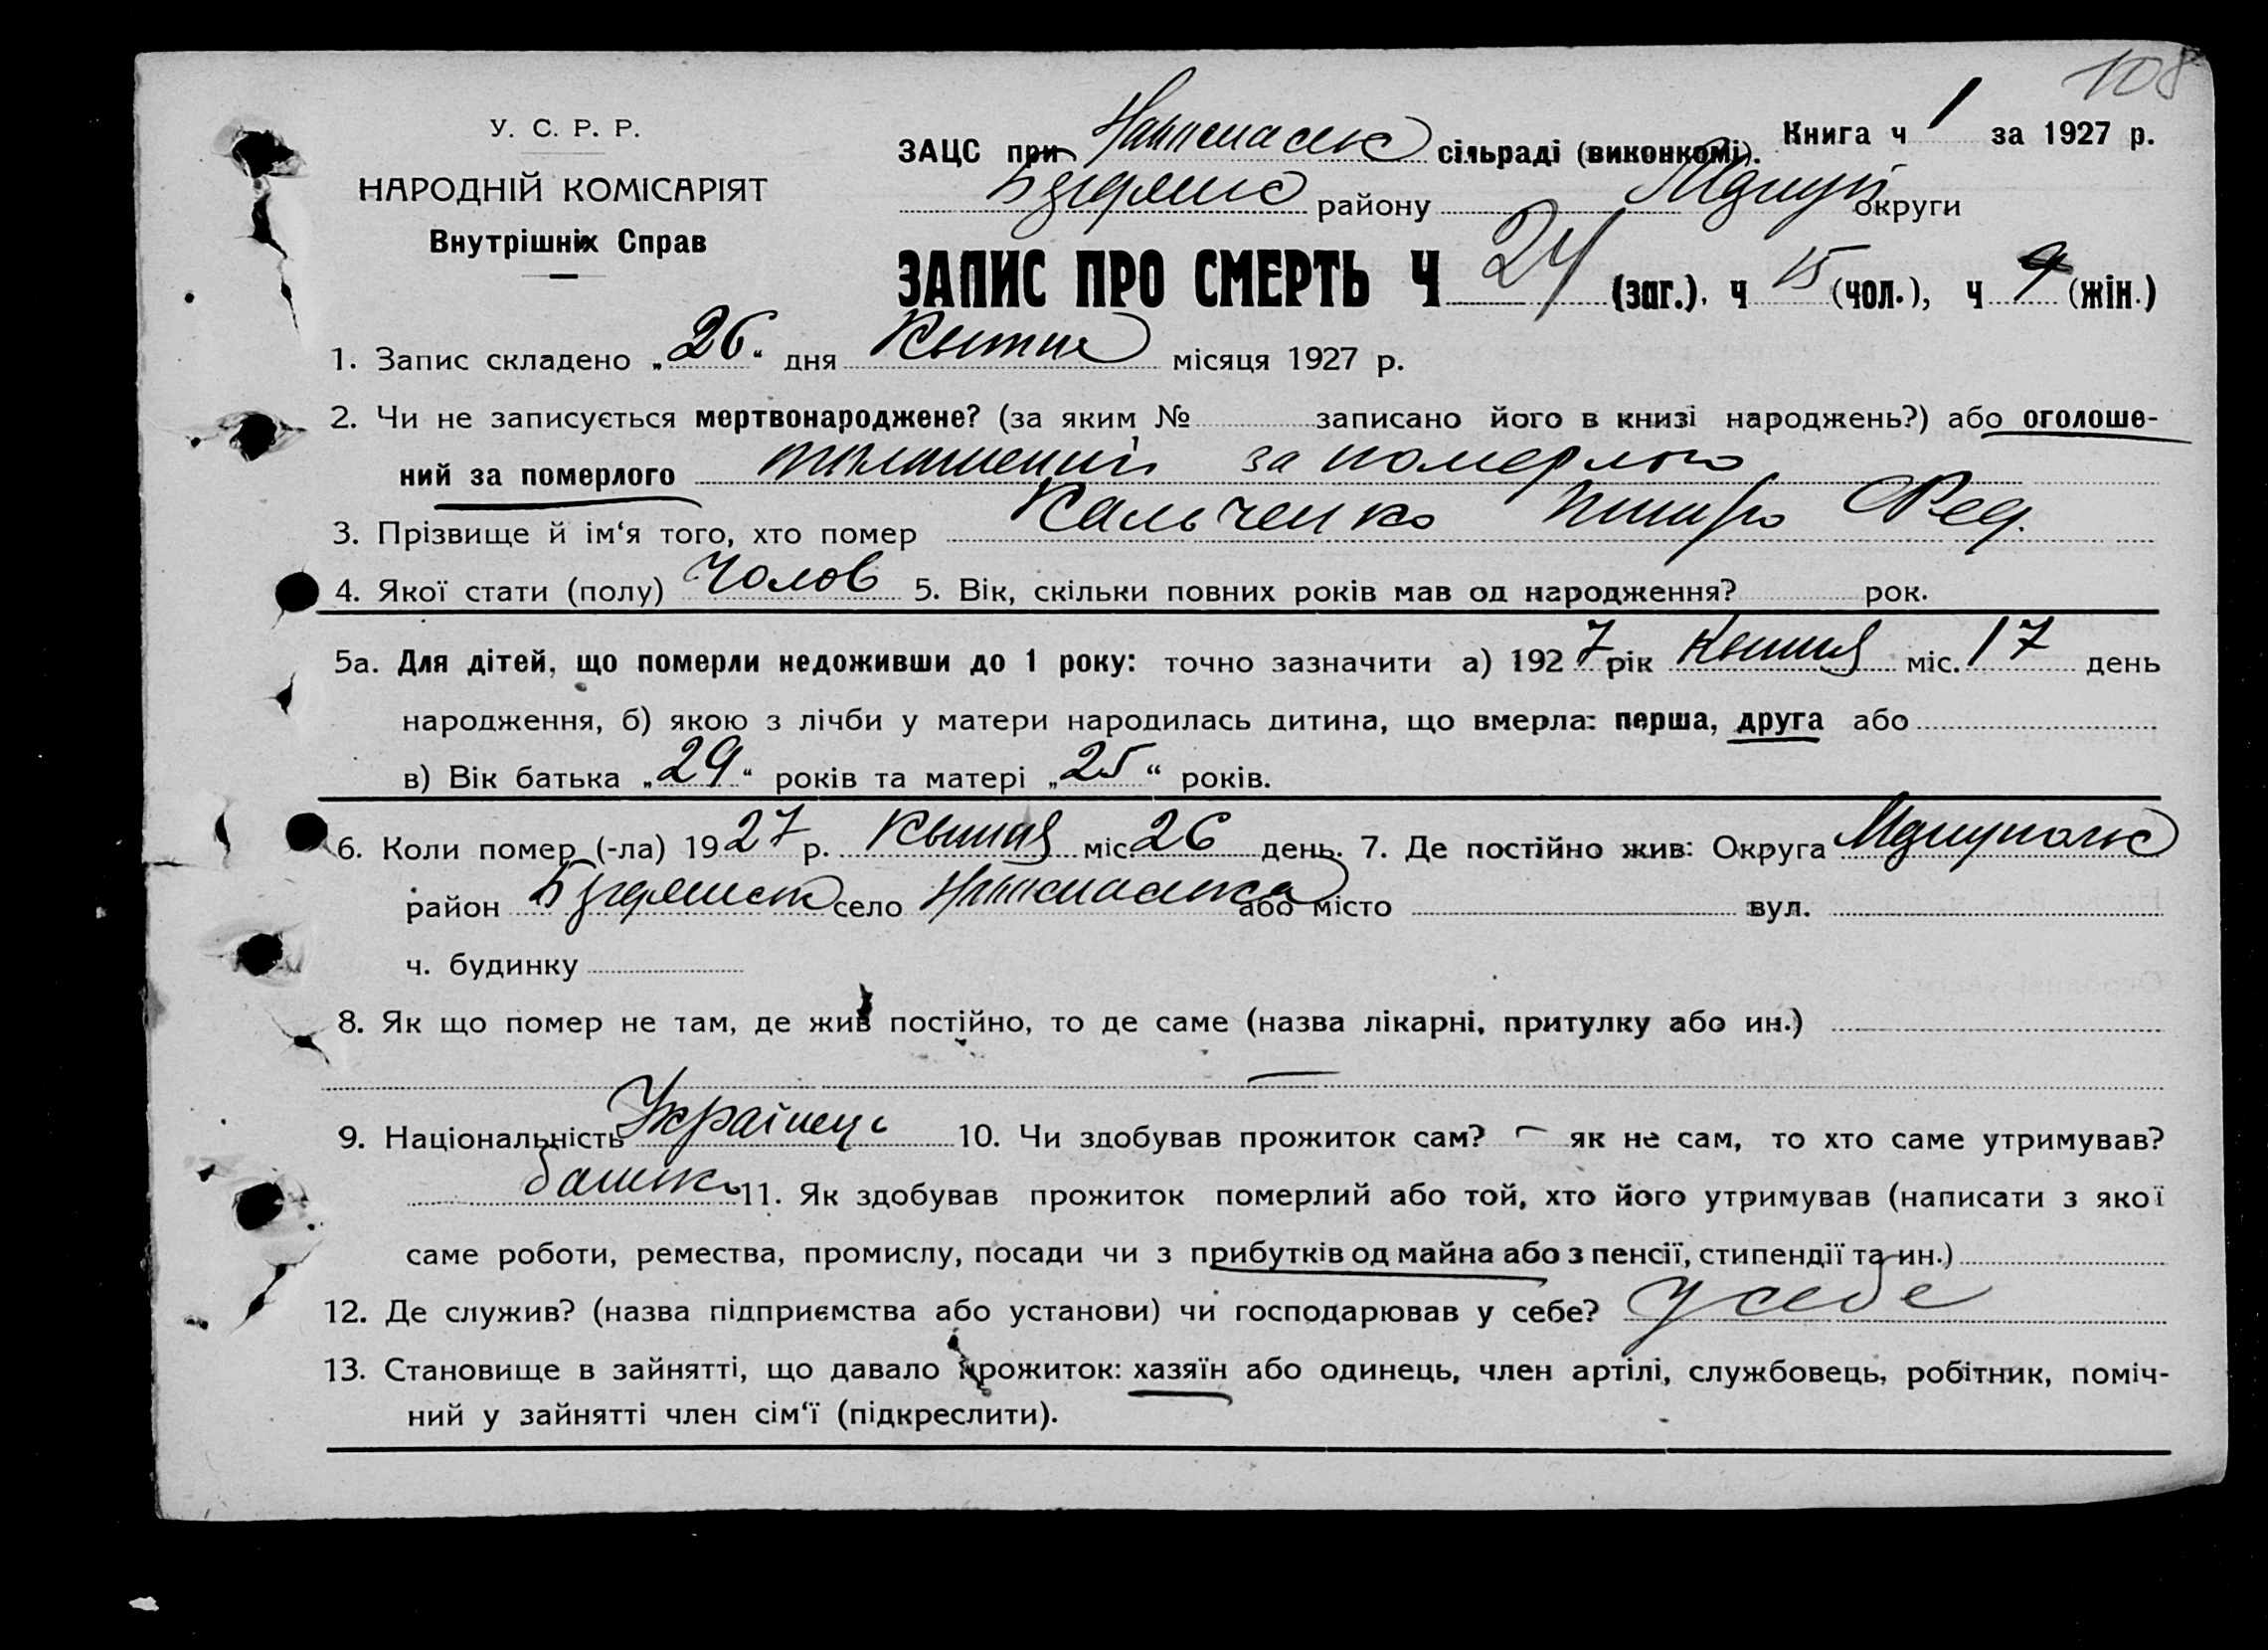 108
У. С. Р. Р.
НАРОДНІЙ КОМІСАРІЯТ
Внутрішніх Справ
Книга ч 1 за 1927 р.
ЗАЦС при сільраді (виконкомі).
району округи
ЗАПИС ПРО СМЕРТЬ Ч 24 (заг.), ч 15 (чол.), ч 9 (жін.)
1. Запис складено „26“ дня Квітня місяця 1927 р.
2. Чи не записується мертвонароджене? (за яким № записано його в книзі народжень?) або оголоше-
ний за померлого за померлого
3. Прізвище й ім‘я того, хто помер Кальченко Фед.
4. Якої стати (полу) Чолов 5. Вік, скільки повних років мав од народження? рок.
5а. Для дітей, що померли недоживши до 1 року: точно зазначити а) 1927 рік Квітня міс. 17 день
народження, б) якою з лічби у матери народилась дитина, що вмерла: перша, друга або
в) Вік батька „29“ років та матері „25“ років.
6. Коли помер (-ла) 1927 р. Квітня міс. 26 день. 7. Де постійно жив: Округа
район село або місто вул.
ч. будинку
8. Як що помер не там, де жив постійно, то де саме (назва лікарні, притулку або ин.)
—
9. Національність Українець 10. Чи здобував прожиток сам? — як не сам, то хто саме утримував?
батько 11. Як здобував прожиток померлий або той, хто його утримував (написати з якої
саме роботи, ремества, промислу, посади чи з прибутків од майна або з пенсії, стипендії та ин.)
12. Де служив? (назва підприємства або установи) чи господарював у себе? у себе
13. Становище в зайнятті, що давало прожиток: хазяїн або одинець, член артілі, службовець, робітник, поміч-
ний у зайнятті член сім‘ї (підкреслити).